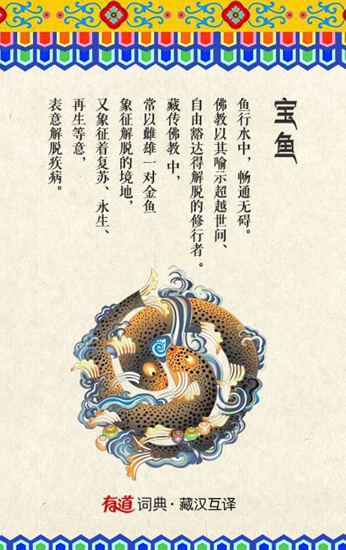 宝鱼
鱼行水中，畅通无碍。
佛教以其喻示超越世间、
自由豁达得解脱的修行者。
藏传佛教中，
常以雌雄一对金鱼
象征解脱的境地，
又象征着复苏、永生、
再生等意，
表意解脱疾病。
有道词典·藏汉互译